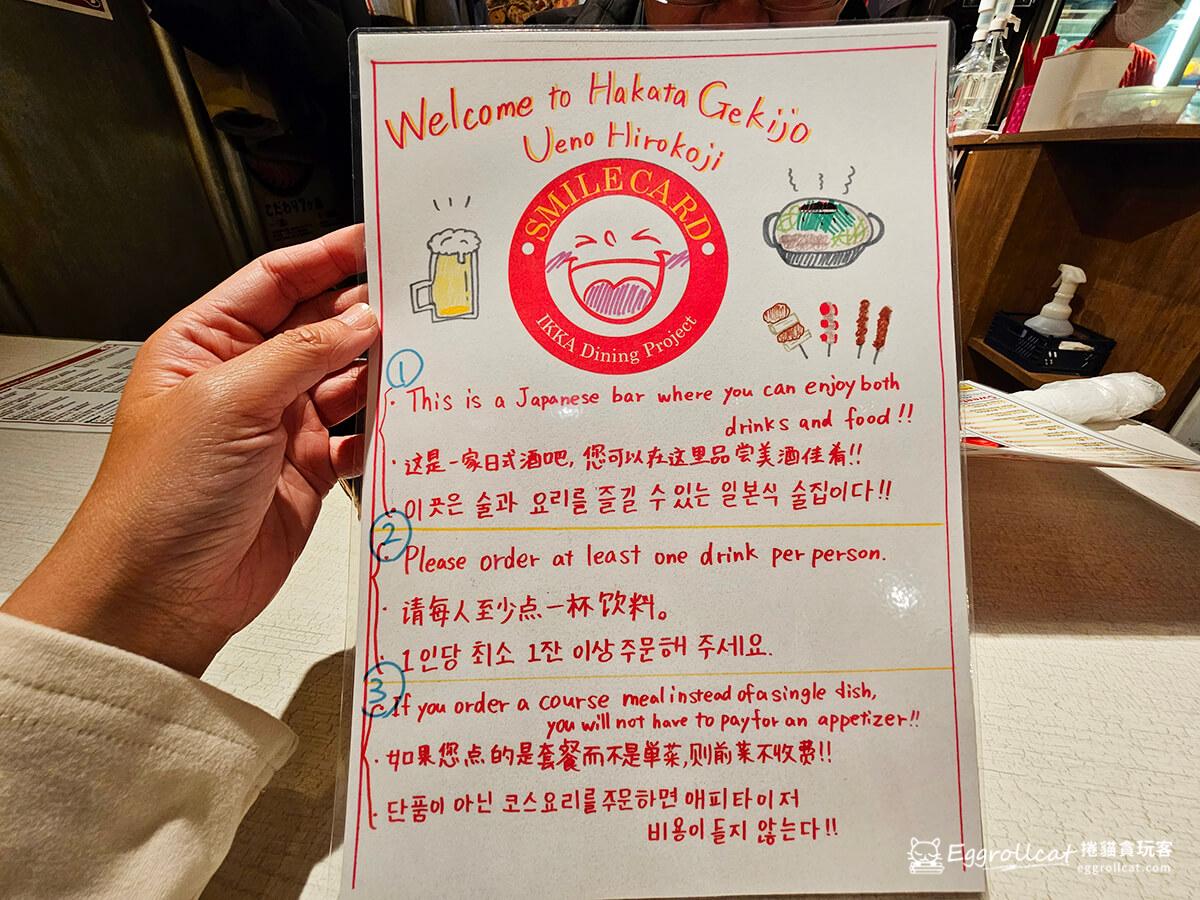 Welcome to Hakata Gekijo
Ueno Hirokoji
SMILE CARD
IKKA Dining Project
①
· This is a Japanese bar where you can enjoy both
drinks and food!!
· 这是一家日式酒吧, 您可以在这里品尝美酒佳肴!!
· 이곳은 술과 요리를 즐길 수 있는 일본식 술집이다!!
②
· Please order at least one drink per person.
· 请每人至少点一杯饮料。
· 1인당 최소 1잔 이상 주문해 주세요.
③
· If you order a course meal instead of a single dish,
you will not have to pay for an appetizer!!
· 如果您点的是套餐而不是单菜,则前菜不收费!!
· 단품이 아닌 코스요리를 주문하면 애피타이저
비용이 들지 않는다!!
Eggrollcat 捲貓貪玩客
eggrollcat.com